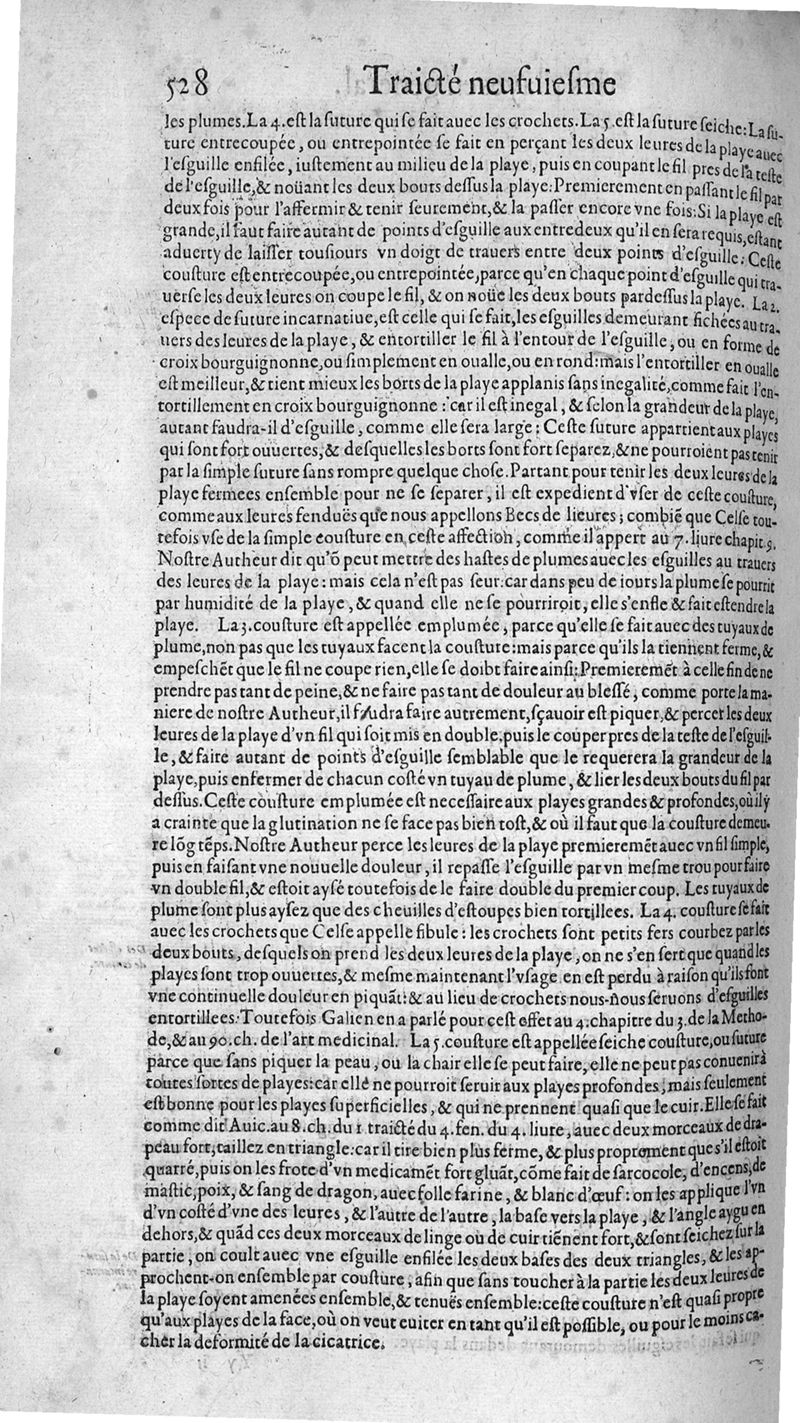 528 Traicté neufuiesme
les plumes. La 4. est la suture qui se fait auec les crochets. La 5. est la suture seiche: La su-
ture entrecoupée, ou entrepointée se fait en perçant les deux leures de la playe auec
l'esguille enfilée, iustement au milieu de la playe, puis en coupant le fil pres de la teste
de l'esguille, & noüant les deux bouts dessus la playe: Premierement en passant le fil par
deux fois pour l'affermir & tenir seurement, & la passer encore vne fois: Si la playe est
grande, il faut faire autant de points d'esguille aux entredeux qu'il en sera requis, estant
aduerty de laisser tousiours vn doigt de trauers entre deux points d'esguille: Ceste
cousture est entrecoupée, ou entrepointée, parce qu'en chaque point d'esguille qui tra-
uerse les deux leures on coupe le fil, & on noüe les deux bouts pardessus la playe. La 2.
espece de suture incarnatiue, est celle qui se fait, les esguilles demeurant fichées au tra-
uers des leures de la playe, & entortiller le fil à l'entour de l'esguille, ou en forme de
croix bourguignonne, ou simplement en oualle, ou en rond: mais l'entortiller en oualle
est meilleur, & tient mieux les borts de la playe applanis sans inegalité, comme fait l'en-
tortillement en croix bourguignonne: car il est inegal, & selon la grandeur de la playe,
autant faudra-il d'esguille, comme elle sera large: Ceste suture appartient aux playes
qui sont fort ouuertes, & desquelles les borts sont fort separez, & ne pourroient pas tenir
par la simple suture sans rompre quelque chose. Partant pour tenir les deux leures de la
playe fermees ensemble pour ne se separer, il est expedient d'vser de ceste cousture,
comme aux leures fenduës que nous appellons Becs de lieures; combiẽ que Celse tou-
tefois vse de la simple cousture en ceste affection, comme il appert au 7. liure chapit. 9.
Nostre Autheur dit qu'õ peut mettre des hastes de plumes auec les esguilles au trauers
des leures de la playe: mais cela n'est pas seur: car dans peu de iours la plume se pourrit
par humidité de la playe, & quand elle ne se pourriroit, elle s'enfle & fait estendre la
playe. La 3. cousture est appellée emplumée, parce qu'elle se fait auec des tuyaux de
plume, non pas que les tuyaux facent la cousture: mais parce qu'ils la tiennent ferme, &
empeschẽt que le fil ne coupe rien, elle se doibt faire ainsi: Premieremẽt à celle fin de ne
prendre pas tant de peine, & ne faire pas tant de douleur au blessé, comme porte la ma-
niere de nostre Autheur, il faudra faire autrement, sçauoir est piquer, & percer les deux
leures de la playe d'vn fil qui soit mis en double, puis le couper pres de la teste de l'esguil-
le, & faire autant de points d'esguille semblable que le requerera la grandeur de la
playe, puis enfermer de chacun costé vn tuyau de plume, & lier les deux bouts du fil par
dessus. Ceste cousture emplumée est necessaire aux playes grandes & profondes, où il y
a crainte que la glutination ne se face pas bien tost, & où il faut que la cousture demeu-
re lõg tẽps. Nostre Autheur perce les leures de la playe premieremẽt auec vn fil simple,
puis en faisant vne nouuelle douleur, il repasse l'esguille par vn mesme trou pour faire
vn double fil, & estoit aysé toutefois de le faire double du premier coup. Les tuyaux de
plume sont plus aysez que des cheuilles d'estoupes bien tortillees. La 4. cousture se fait
auec les crochets que Celse appelle fibule: les crochets sont petits fers courbez par les
deux bouts, desquels on prend les deux leures de la playe, on ne s'en sert que quand les
playes sont trop ouuertes, & mesme maintenant l'vsage en est perdu à raison qu'ils font
vne continuelle douleur en piquãt: & au lieu de crochets nous-nous seruons d'esguilles
entortillees. Toutefois Galien en a parlé pour cest effet au 4. chapitre du 3. de la Metho-
de, & au 90. ch. de l'art medicinal. La 5. cousture est appellée seiche cousture, ou suture
parce que sans piquer la peau, ou la chair elle se peut faire, elle ne peut pas conuenir à
toutes sortes de playes: car elle ne pourroit seruir aux playes profondes, mais seulement
est bonne pour les playes superficielles, & qui ne prennent quasi que le cuir. Elle se fait
comme dit Auic. au 8. ch. du 1 traicté du 4. fen. du 4. liure, auec deux morceaux de dra-
peau fort, taillez en triangle: car il tire bien plus ferme, & plus proprement que s'il estoit
quarré, puis on les frote d'vn medicamẽt fort gluãt, cõme fait de sarcocole, d'encens, de
mastic, poix, & sang de dragon, auec folle farine, & blanc d'œuf: on les applique l'vn
d'vn costé d'vne des leures, & l'autre de l'autre, la base vers la playe, & l'angle aygu en
dehors, & quãd ces deux morceaux de linge ou de cuir tiẽnent fort, & sont seichez sur la
partie, on coult auec vne esguille enfilée les deux bases des deux triangles, & les ap-
prochent-on ensemble par cousture, afin que sans toucher à la partie les deux leures de
la playe soyent amenées ensemble, & tenuës ensemble: ceste cousture n'est quasi propre
qu'aux playes de la face, où on veut euiter en tant qu'il est possible, ou pour le moins ca-
cher la deformité de la cicatrice.